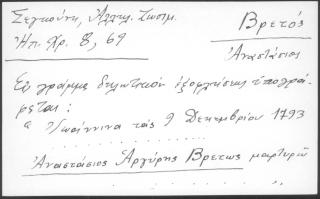 Σεγκούνη, Ἀλληλ. Ζωσιμ.
Ἠπ. Χρ. 8, 69
Βρετός
Ἀναστάσιος
Εἰς γράμμα δηλωτικὸν ἐξοφλήσεως ὑπογρά
φεται:
"Ἰωάννινα τὰς 9 Δεκεμβρίου 1793
Ἀναστάσιος Ἀργύρης Βρετὸς μαρτυρῶ"